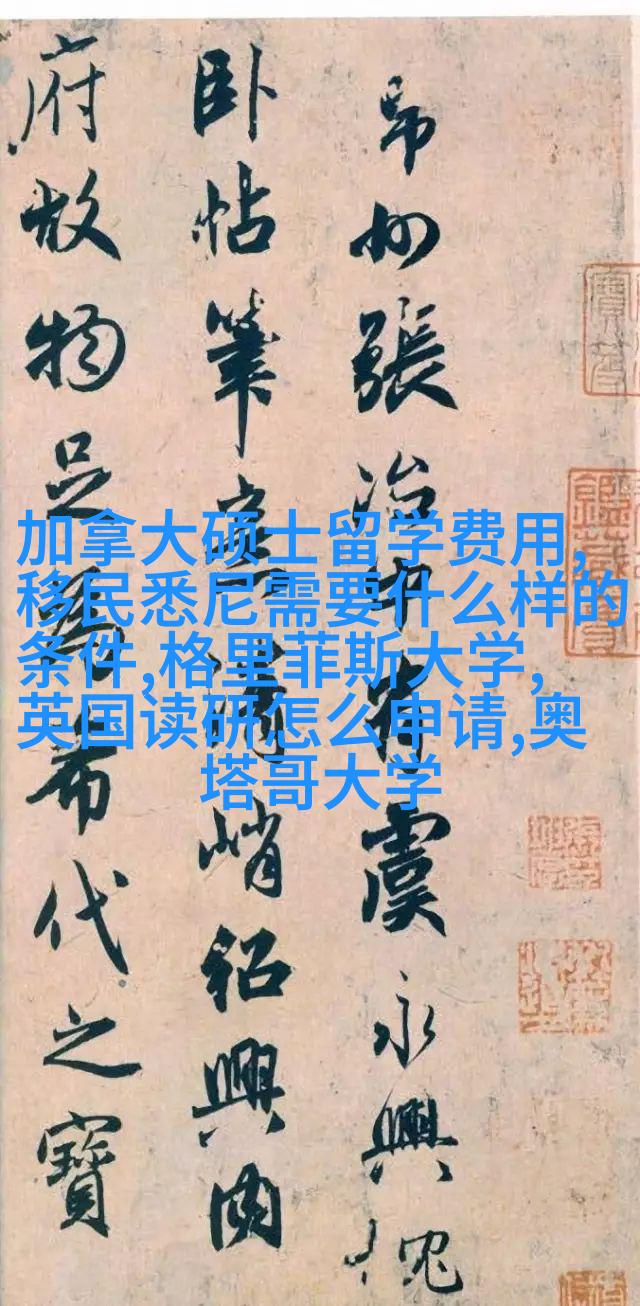 州張治中有虞永興枕
卧帖筆意清峭紹興内
府故物足為希代之寶
加拿大硕士留学费用,
移民悉尼需要什么样的
条件,格里菲斯大学,
英国读研怎么申请,奥
塔哥大学